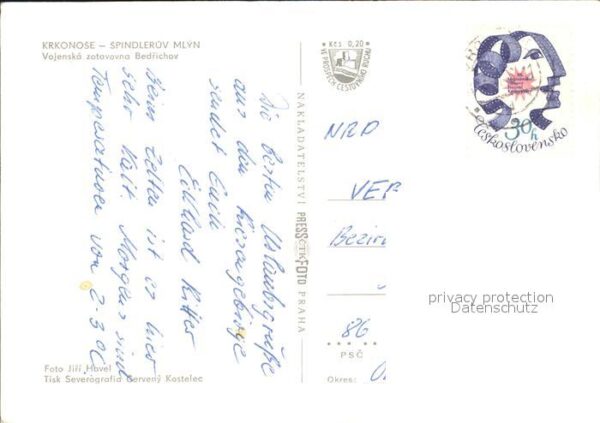 KRKONOŠE — ŠPINDLERŮV MLÝN
Vojenská zotavovna Bedřichov
Kčs 0,20
VE PROSPĚCH CESTOVNÍHO RUCHU
Die besten Urlaubsgrüße
aus dem Riesengebirge
sendet Euch
Ekkhard Ritter
Beim Zelten ist es hier
sehr kalt. Morgens sind
Temperaturen von 2-3°C
NAKLADATELSTVÍ PRESSFOTO PRAHA
ČTK
30h
Československo
NRD
VEB
Bezirk
86
PSČ
Okres:
privacy protection
Datenschutz
Foto Jiří Havel
Tisk Severografia Červený Kostelec